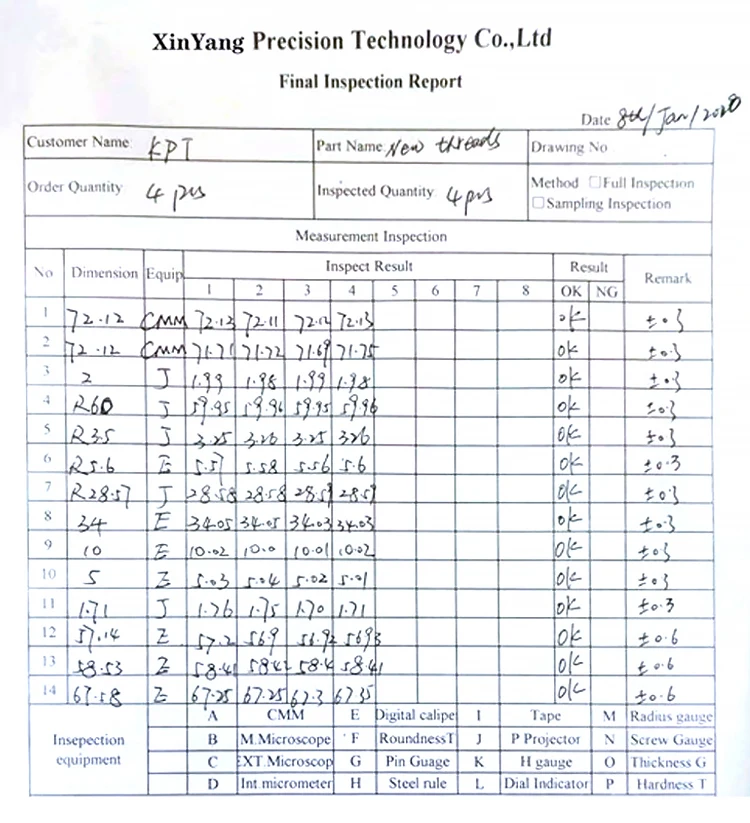 XinYang Precision Technology Co.,Ltd
Final Inspection Report
Date 8th/Jan/2020
Customer Name: KPT Part Name: New threads Drawing No
Order Quantity 4 pcs Inspected Quantity 4 pcs Method □Full Inspection
□Sampling Inspection
Measurement Inspection
No Dimension Equip Inspect Result Result Remark
1 2 3 4 5 6 7 8 OK NG
1 72.12 CMM 72.12 72.11 72.12 72.13 ok ±0.3
2 72.12 CMM 71.71 71.72 71.69 71.75 ok ±0.3
3 2 J 1.99 1.98 1.99 1.98 ok ±0.3
4 R60 J 59.95 59.96 59.95 59.96 ok ±0.3
5 R3.5 J 3.25 3.26 3.25 3.26 ok ±0.3
6 R5.6 E 5.57 5.58 5.56 5.6 ok ±0.3
7 R28.57 J 28.58 28.58 28.59 28.59 ok ±0.3
8 34 E 34.05 34.05 34.03 34.03 ok ±0.3
9 10 E 10.02 10.0 10.01 10.02 ok ±0.3
10 5 E 5.03 5.04 5.02 5.01 ok ±0.3
11 1.71 J 1.76 1.75 1.70 1.71 ok ±0.3
12 57.14 E 57.2 56.9 56.92 56.93 ok ±0.6
13 58.53 E 58.41 58.42 58.4 58.41 ok ±0.6
14 67.58 E 67.25 67.25 67.3 67.35 ok ±0.6
Insepection equipment A CMM E Digital calipe I Tape M Radius gauge
B M.Microscope F RoundnessT J P Projector N Screw Gauge
C EXT.Microscop G Pin Guage K H gauge O Thickness G
D Int.micrometer H Steel rule L Dial Indicator P Hardness T